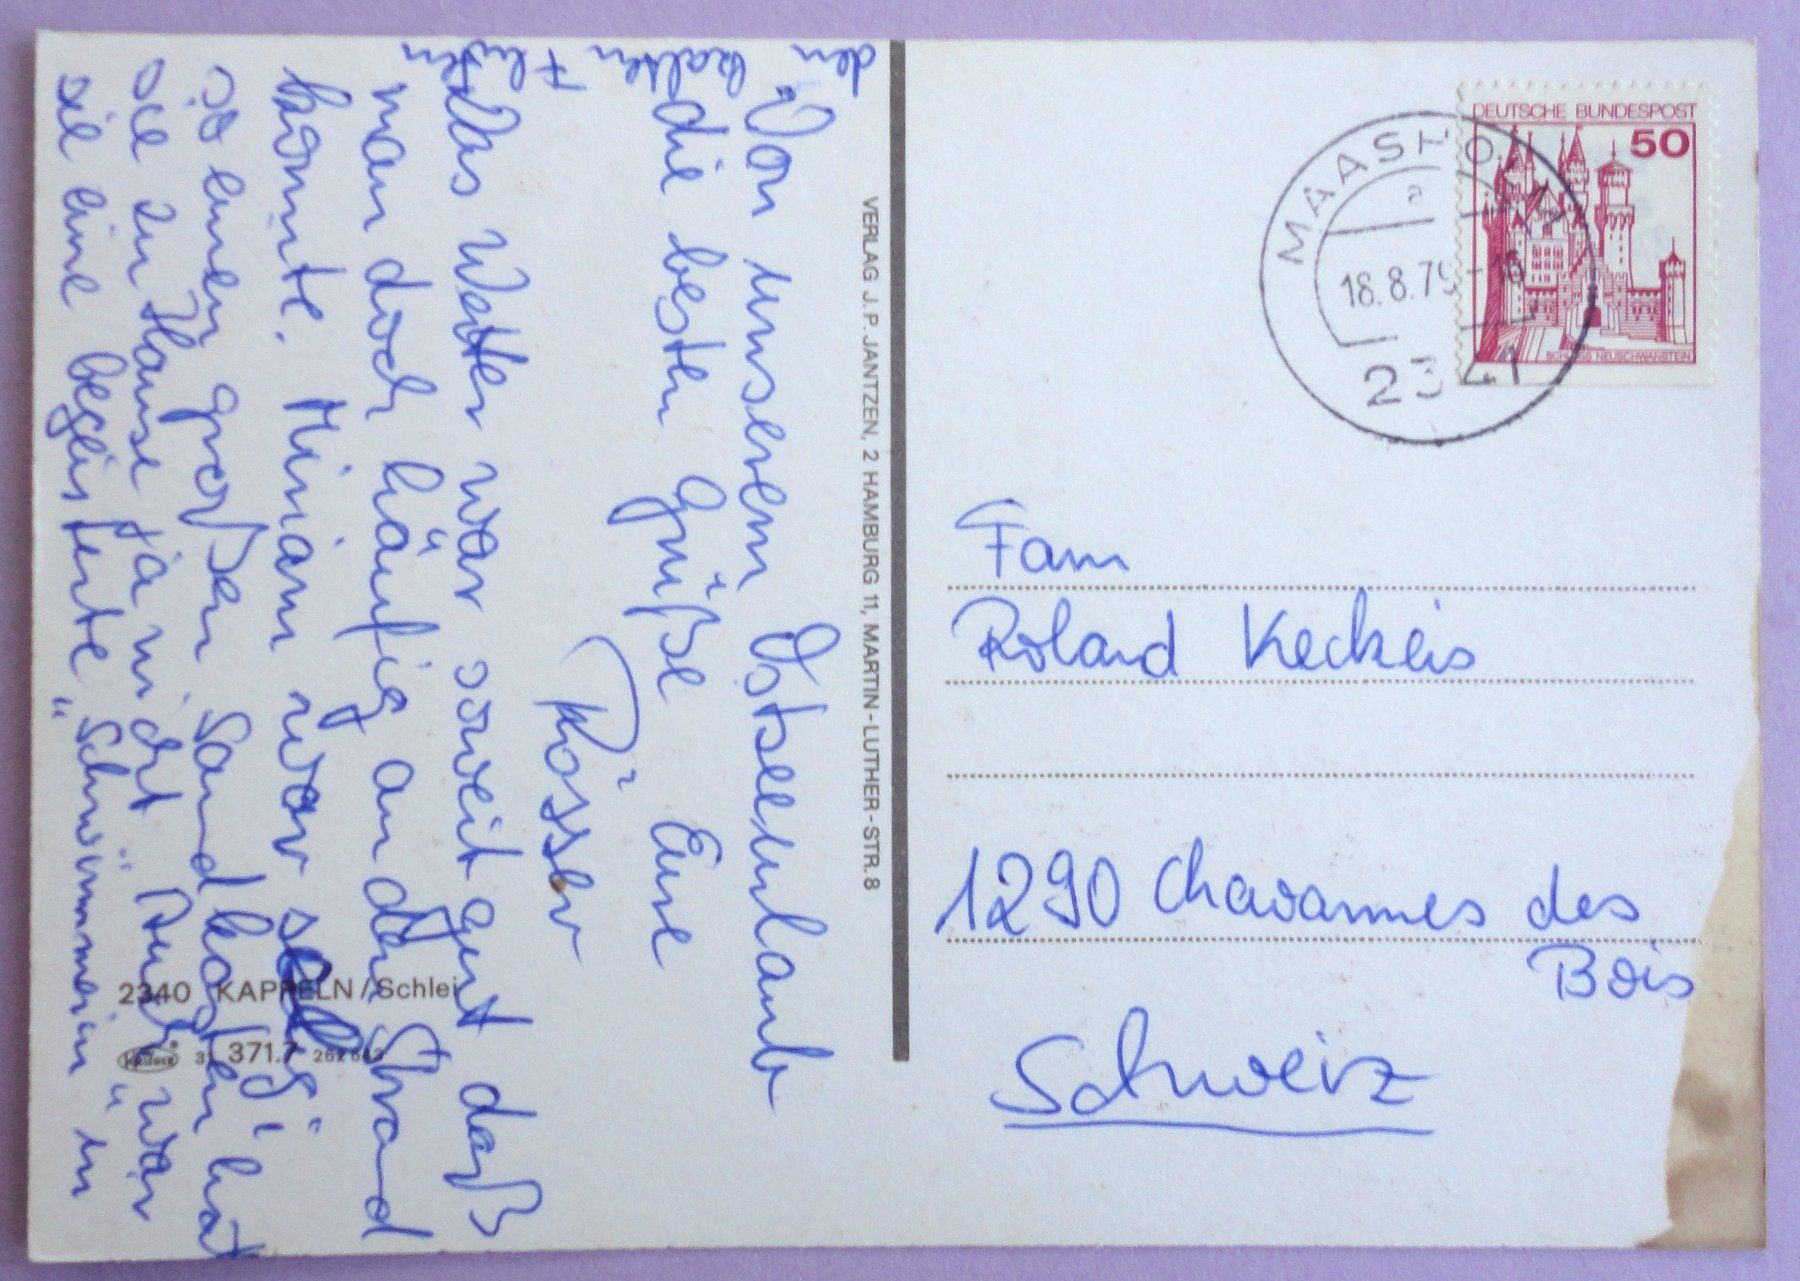 Von unserem Ostseeurlaub
die besten Grüße Eure
Rössler
Das Wetter war soweit gut daß
man doch häufig an den Strand
konnte. Miriam war selig
so einen großen Sandkasten hat
sie zu Hause ja nicht. Auch war
sie eine begeisterte "Schwimmerin" in
den kalten Fluten
VERLAG J. P. JANTZEN, 2 HAMBURG 11, MARTIN-LUTHER-STR. 8
2340 KAPPELN/Schlei
371.7
DEUTSCHE BUNDESPOST
50
SCHLOSS NEUSCHWANSTEIN
MAASHOLM
a
18.8.79-16
2341
Fam
Roland Keckeis
1290 Chavannes des
Bois
Schweiz